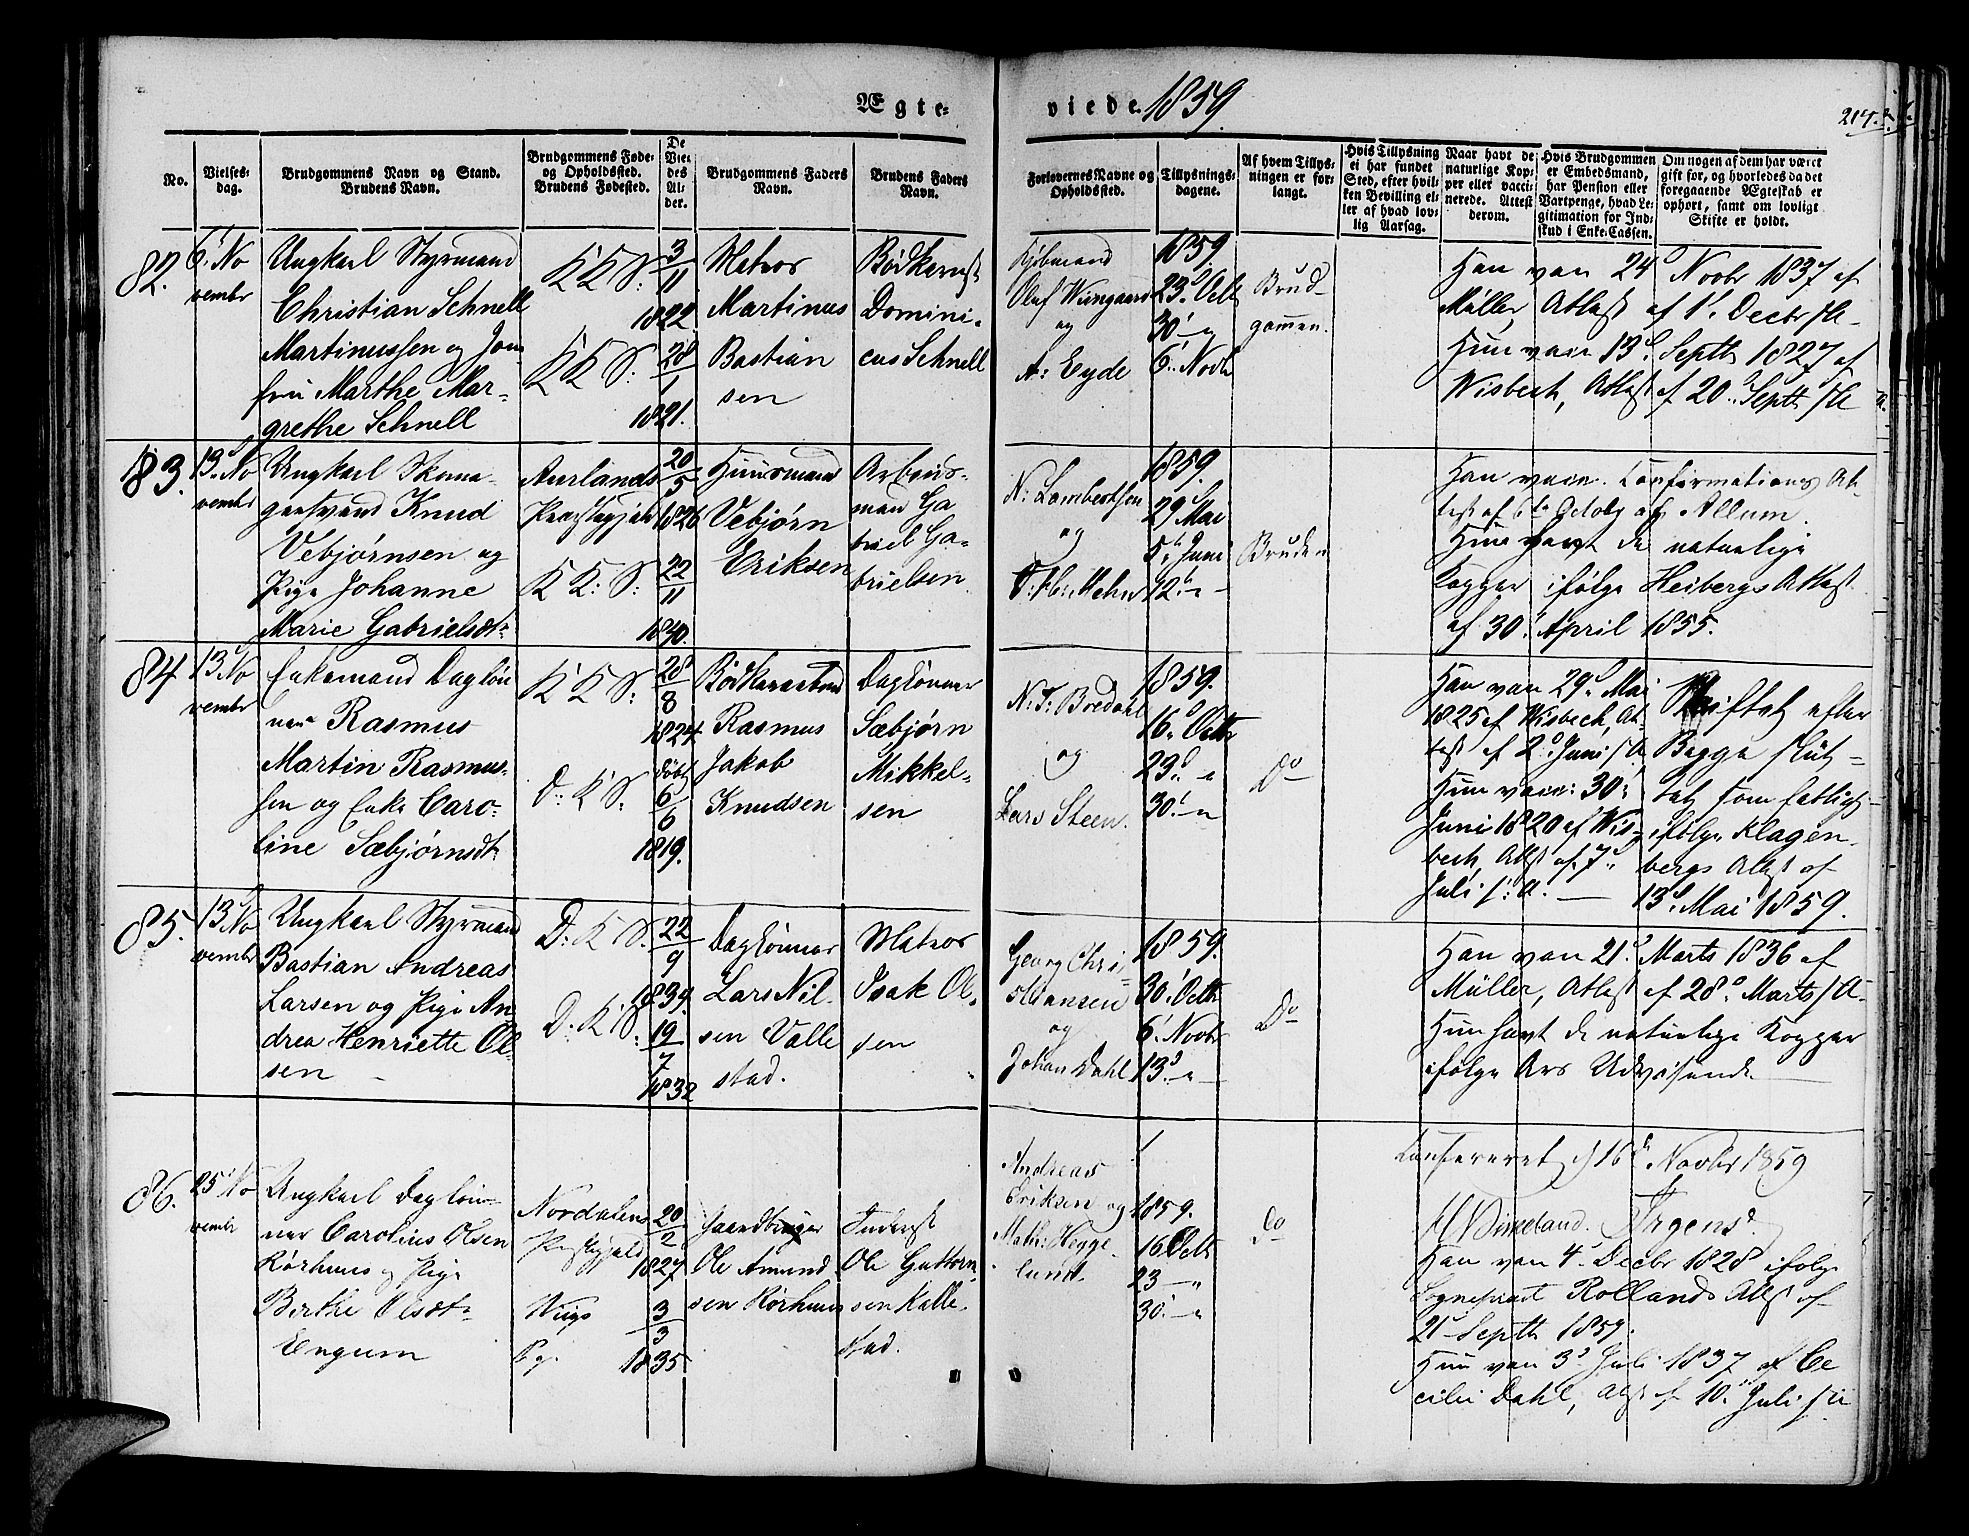 Ægte-
viede 1859.
214.
No.
Vielses-
dag.
Brudgommens Navn og Stand.
Brudens Navn.
Brudgommens Føde-
og Opholdssted.
Brudens Fødested.
De
Vie-
des
Al-
der.
Brudgommens Faders
Navn.
Brudens Faders
Navn.
Forlovernes Navne og
Opholdssted.
Tillysnings-
dagene.
Af hvem Tillys-
ningen er for-
langt.
Hvis Tillysning
ei har fundet
Sted, efter hvil-
ken Bevilling el-
ler af hvad lov-
lig Aarsag.
Naar havt de
naturlige Kop-
per eller vacci-
nerede. Attest
derom.
Hvis Brudgommen
er Embedsmand,
har Pension eller
Vartpenge, hvad Le-
gitimation for Ind-
skud i Enke-Cassen.
Om nogen af dem har været
gift før, og hvorledes da det
foregaaende Ægteskab er
ophørt, samt om lovligt
Skifte er holdt.
82.
6' No
vembr
Ungkarl Styrmand
Christian Schnell
Martinussen og Jom
fru Marthe Mar-
grethe Schnell
K K S:
K K S:
3
11
1822
28
1
1821.
Matros
Martinus
Bastian
sen
Bødkersv
Domini-
cus Schnell
Kjøbmand
Oluf Wiingaard
og
A: Eyde
1859.
23d Octb
30' - "
6' Novbr
Brud-
gommen.
Han vac. 24d Novbr 1837 af
Müller, Attest af 1' Decbr s. A.
Hun vacc. 13d Septb 1827 af
Wisbech, Attest af 20d Septb s. A.
83.
13d No
vembr
Ungkarl Skoma
gersvend Knud
Vebjørnsen og
Pige Johanne
Marie Gabrielsdtr
Aurlands
Præstegjeld
K K: S:
20
5
1826
22
11
1840.
Huusmand
Vebjørn
Eriksen
Arbeids-
mand Ga
briel Ga-
brielsen
N: Lambertsen
og
1859.
29d Mai
5te Juni
12' - "
Bruden
Han vacc. Confirmations At-
test af 6te Octobr af Allum.
Hun havt de naturlige
Kopper ifølge Heibergs Attest
af 30' April 1855.
84
13d No
vembr
Enkemand Dagløn
ner Rasmus
Martin Rasmus-
sen og Enke Caro-
line Sæbjørnsdt
K K S:
D: K S:
28
8
1824
døbt
6
6
1819.
Bødkersvend
Rasmus
Jakob
Knudsen
Daglønner
Sæbjørn
Mikkel-
sen
N: T: Bredahl
og
Lars Steen.
1859.
16d Octb
23d "
30' "
Do
Han vac. 29d Mai
1825 af Wisbech, At-
test af 2d Juni s. A.
Hun vacc: 30'
Juni 1820 af Wis-
bech, Attst af 7d
Juli s: A. —
Skiftet efter
Begge slut-
tet som fatligt
ifølge Klagen
bergs Attest af
13d Mai 1859.
85.
13d No
vembr
Ungkarl Styrmand
Bastian Andreas
Larsen og Pige An
drea Henriette Ol-
sen
D: K S.
D: K: S:
22
9
1839.
19
7
1832
Daglønner
Lars Nil-
sen Valle
stad.
Matros
Isak Ol-
sen
Georg Chri
stiansen
og
Johan Dahl
1859.
30' Octb
6' Novbr
13d "
Do
Han vac. 21d Marts 1836 af
Müller, Attest af 28d Marts s. A.
Hun havt de naturlige Kopper
ifølge Ars Udvisende
86.
25' No
vembr
Ungkarl Dagløn-
ner Carolius Olsen
Rørhuus og Pige
Berthe Olsdtr
Engum
Nordalens
Præstegjeld
Wiigs
Pg.
20
2
1827
3
3
1835.
Jaardbruger
Ole Amund-
sen Rørhuus
Inderst
Ole Guttorm
sen Kalle-
stad.
Andreas
Eriksen og
Math: Hegge-
lund.
1859.
16 Octb
23 - "
30' - "
Do
Confereret d 16d Novbr 1859
Irgens.
Han vac. 4d Decbr 1828 ifølge
Sogneprest Rollands Attest af
21' Septb 1859.
Hun vac. 3d Juli 1837 af Ce
cilie Dahl, Attst af 10d Juli s. A.